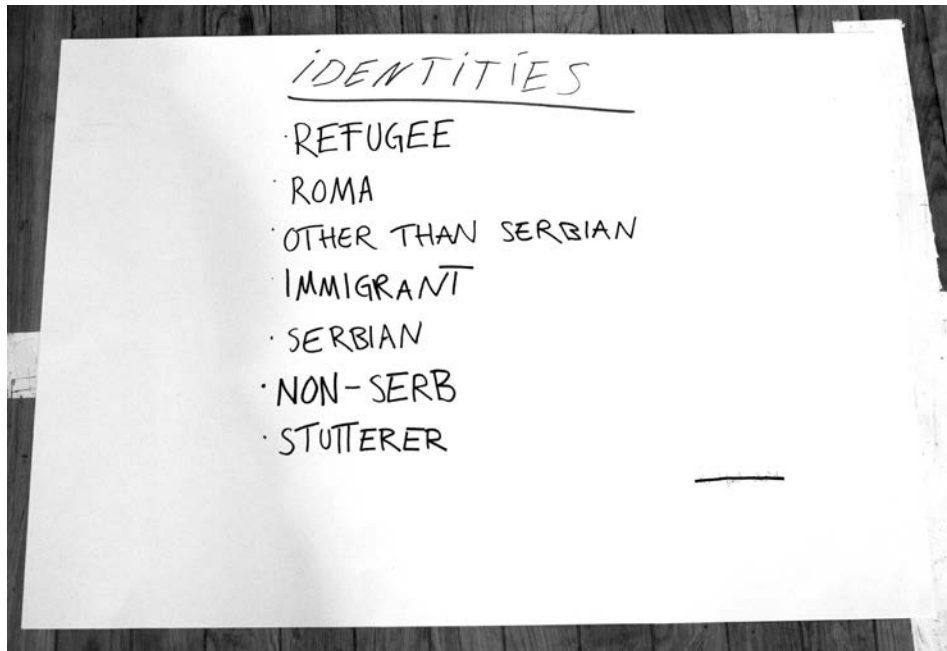 iDENTiTiES
· REFUGEE
· ROMA
· OTHER THAN SERBIAN
· IMMIGRANT
· SERBIAN
· NON-SERB
· STUTTERER